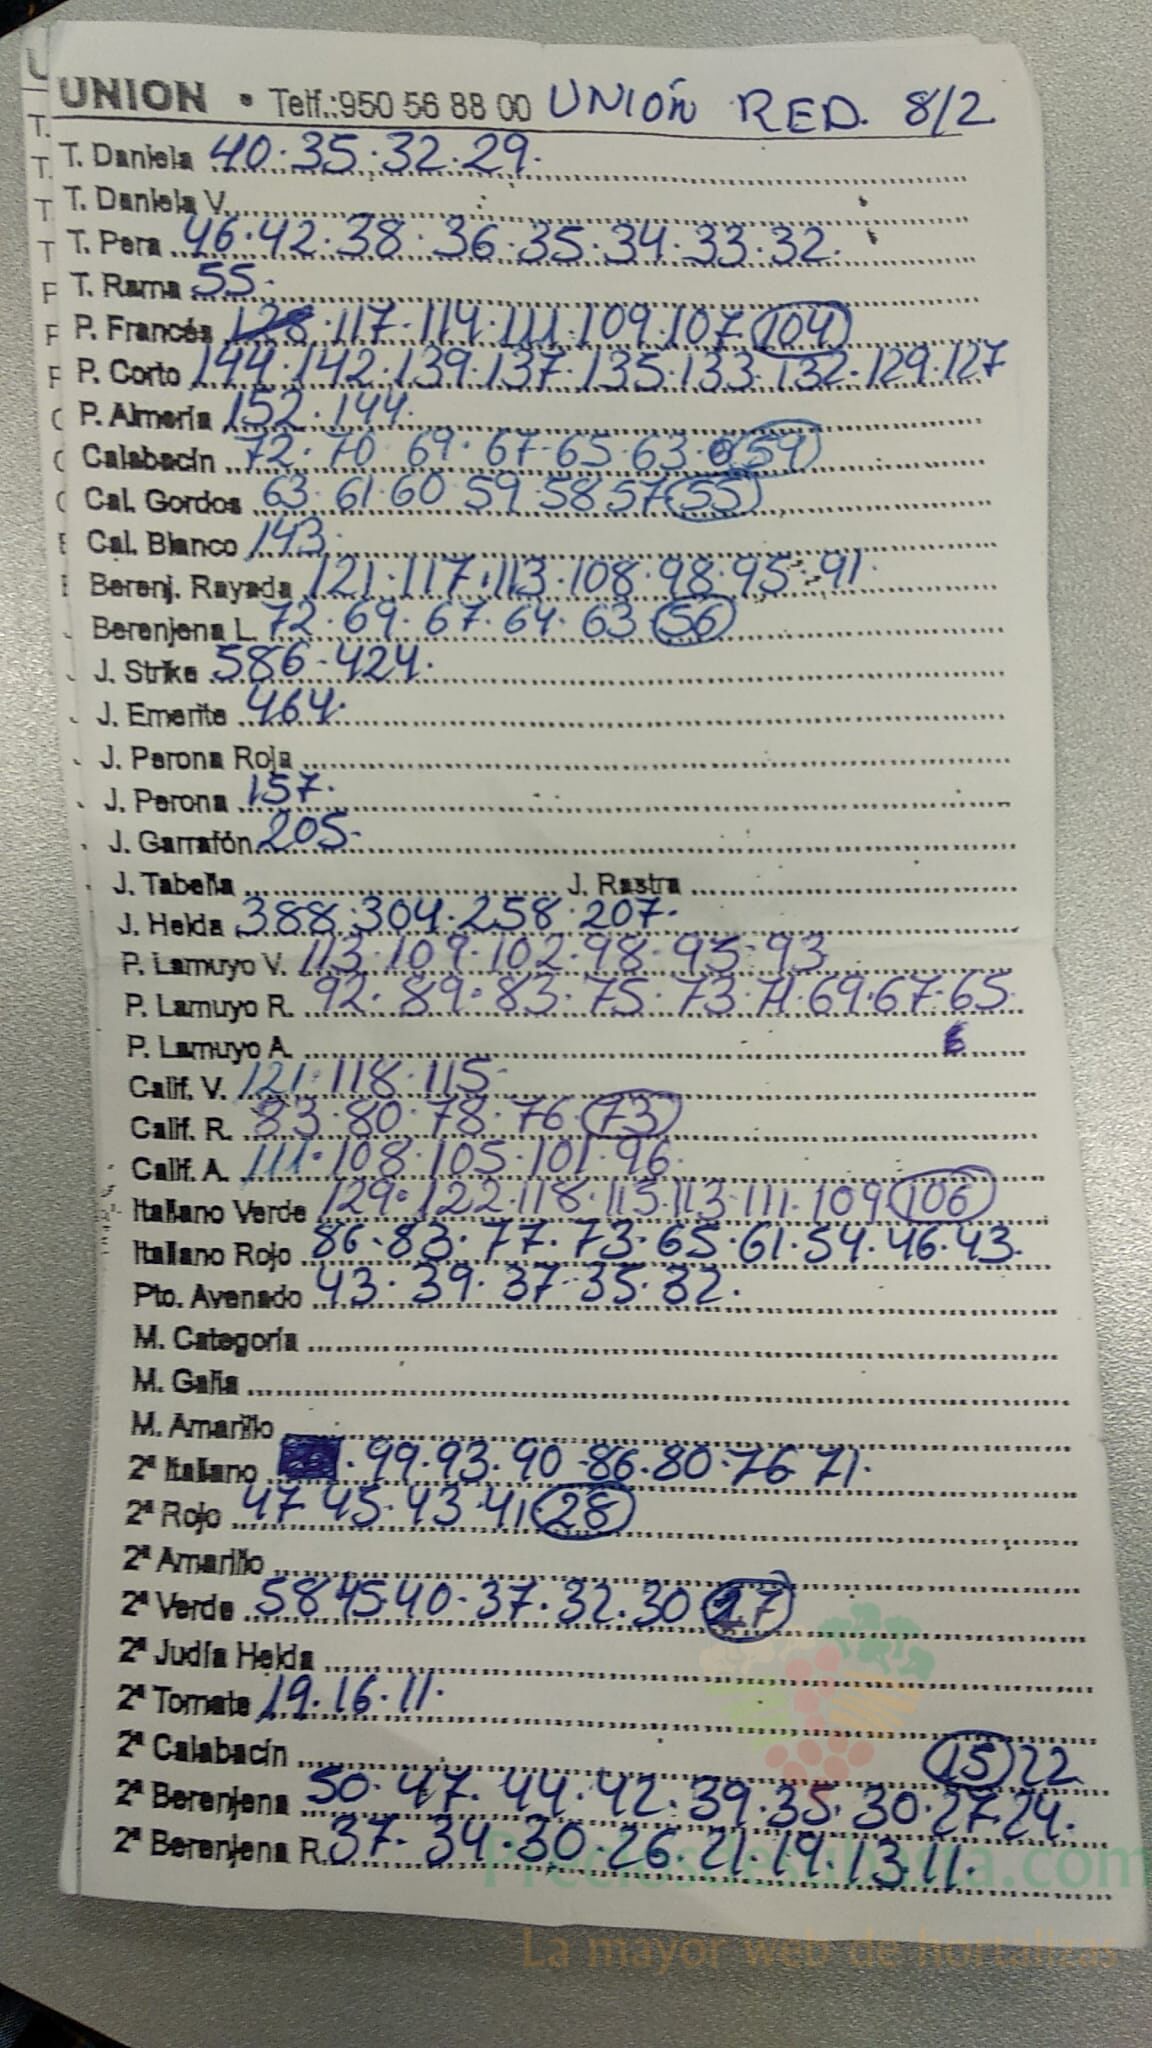 UNION • Telf.:950 56 88 00 UNIÓN RED. 8/2
T. Daniela 40.35.32.29.
T. Daniela V.
T. Pera 46.42.38.36.35.34.33.32.
T. Rama 55.
P. Francés 128.117.114.111.109.107 104
P. Corto 144.142.139.137.135.133.132.129.127
P. Almería 152.144.
Calabacín 72.70 69.67.65.63. 59
Cal. Gordos 63.61.60 59.58 57 55
Cal. Blanco 143.
Berenj. Rayada 121.117.113.108.98.95.91.
Berenjena L. 72.69.67.64.63 56
J. Strike 586-424.
J. Emerite 464.
J. Perona Roja
J. Perona 157.
J. Garrafón 205.
J. Tabella J. Rastra
J. Helda 388.304.258.207.
P. Lamuyo V. 113.109.102.98.95.93
P. Lamuyo R. 92.89.83.75.73.71.69.67.65.
P. Lamuyo A.
Calif. V. 121.118.115.
Calif. R. 83.80.78.76 73
Calif. A. 111.108.105.101.96.
Italiano Verde 129.122.118.115.113.111.109 106
Italiano Rojo 86.83.77.73.65.61.54.46.43.
Pto. Avenado 43.39.37.35.32.
M. Categoría
M. Galia
M. Amarillo
2ª Italiano .99.93.90.86.80.76 71.
2ª Rojo 47 45.43.41 28
2ª Amarillo
2ª Verde 58 45.40.37.32.30 27
2ª Judía Helda
2ª Tomate 19.16.11.
2ª Calabacín 15 22
2ª Berenjena 50.47.44.42.39.35.30.27.24.
2ª Berenjena R. 37.34.30.26.21.19.13.11.
Preciosdesubasta.com
La mayor web de hortalizas